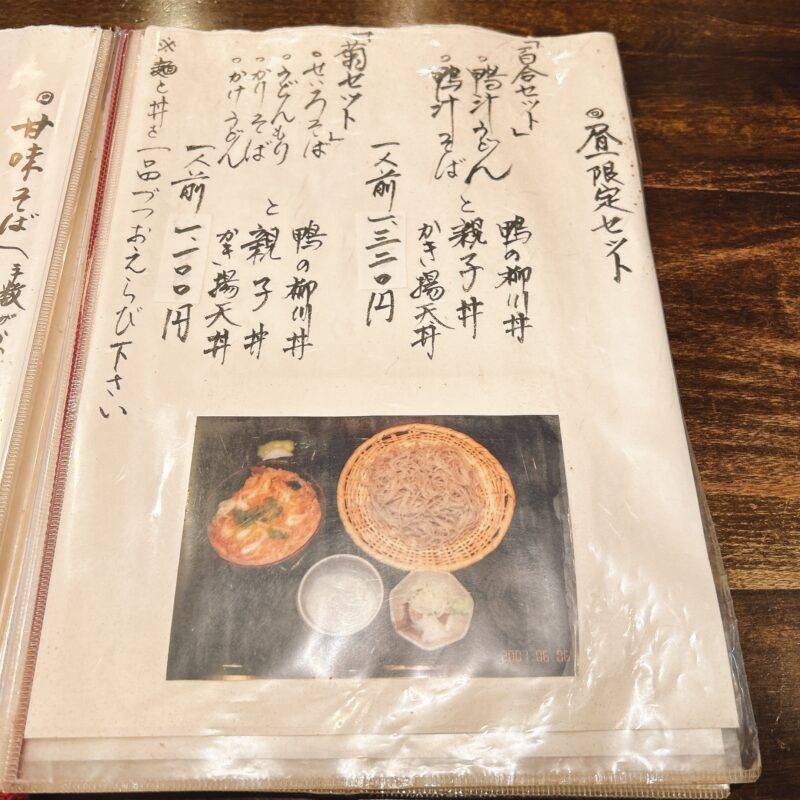 ◎昼限定セット
「百合セット」
。鴨汁うどん
。鴨汁そば
と
鴨の柳川丼
親子丼
かき揚天丼
一人前一、三二〇円
「菊セット」
。せいろそば
。うどんもり
。かけそば
。かけうどん
と
鴨の柳川丼
親子丼
かき揚天丼
一人前一、一〇〇円
※麺と丼を一品づつおえらび下さい
◎甘味そば
2007.06.06